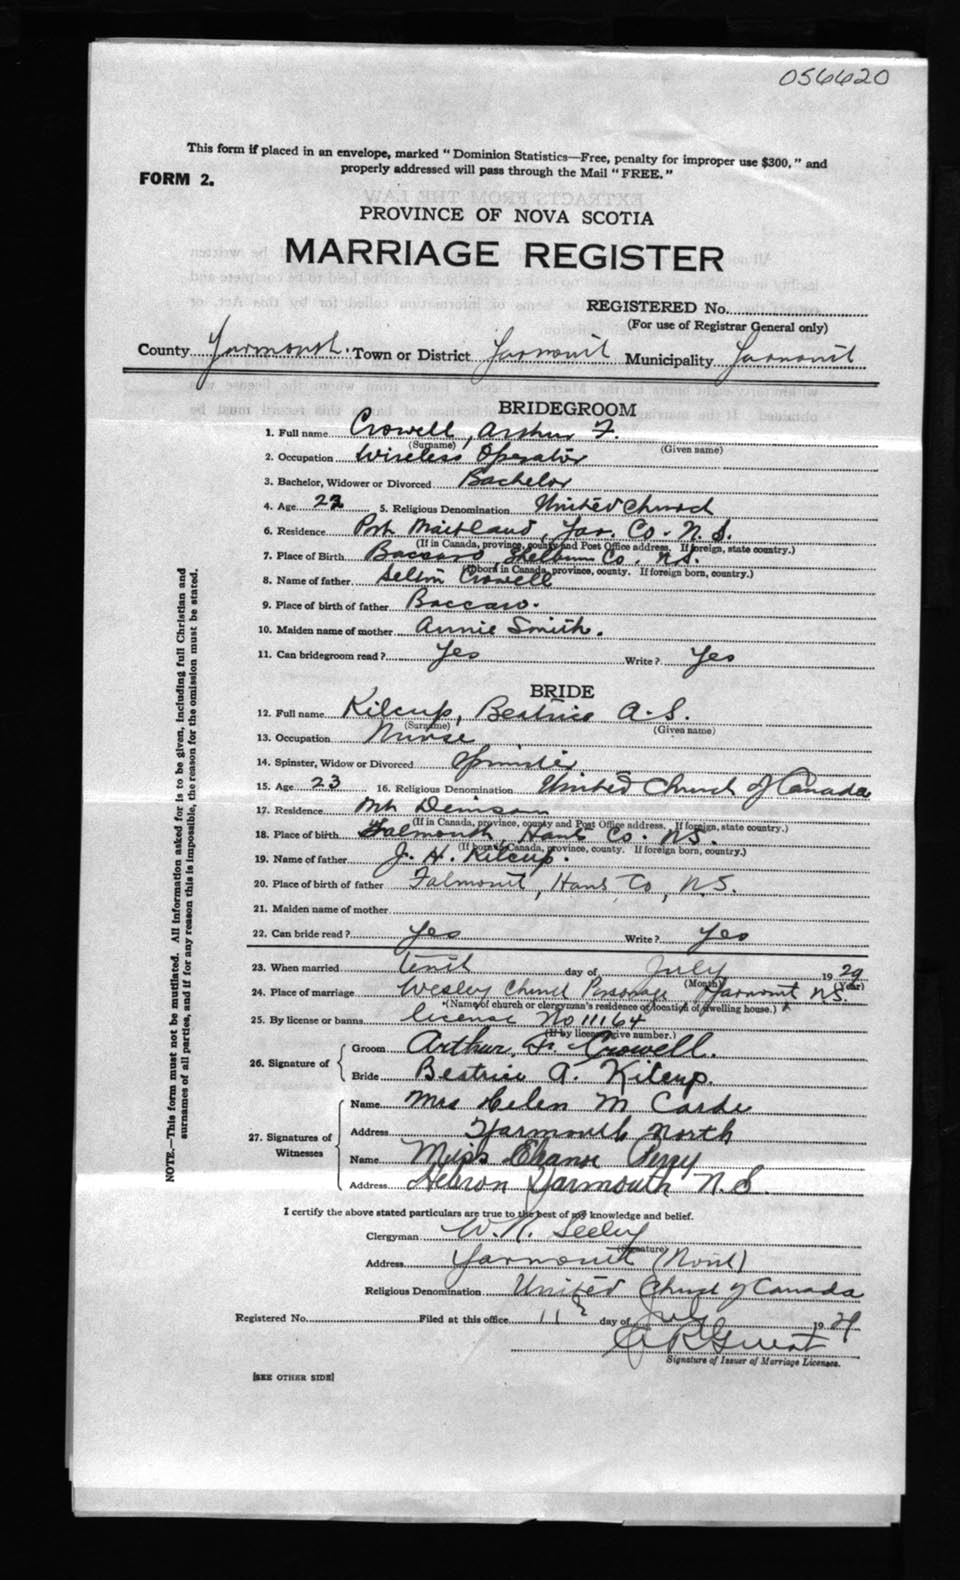 056620
This form if placed in an envelope, marked "Dominion Statistics—Free, penalty for improper use $300," and
properly addressed will pass through the Mail "FREE."
FORM 2.
PROVINCE OF NOVA SCOTIA
MARRIAGE REGISTER
REGISTERED No.
(For use of Registrar General only)
County Yarmouth. Town or District Yarmouth Municipality Yarmouth
BRIDEGROOM
1. Full name Crowell, Arthur F.
(Surname) (Given name)
2. Occupation Wireless Operator
3. Bachelor, Widower or Divorced Bachelor
4. Age 22 5. Religious Denomination United Church
6. Residence Port Maitland, Yar. Co. N.S.
(If in Canada, province, county and Post Office address. If foreign, state country.)
7. Place of Birth Baccaro, Shelburn Co. N.S.
(If born in Canada, province, county. If foreign born, country.)
8. Name of father Crowell
9. Place of birth of father Baccaro.
10. Maiden name of mother Annie Smith.
11. Can bridegroom read? Yes Write? Yes
BRIDE
12. Full name Kilcup, Beatrice A.S.
(Surname) (Given name)
13. Occupation Nurse
14. Spinster, Widow or Divorced Spinster
15. Age 23 16. Religious Denomination United Church of Canada
17. Residence Mt Denison
(If in Canada, province, county and Post Office address. If foreign, state country.)
18. Place of birth Falmouth, Hants Co. N.S.
(If born in Canada, province, county. If foreign born, country.)
19. Name of father J. H. Kilcup.
20. Place of birth of father Falmouth, Hants Co, N.S.
21. Maiden name of mother
22. Can bride read? Yes Write? Yes
23. When married tenth day of July 1929
(Month) (Year)
24. Place of marriage Wesley Church Parsonage Yarmouth N.S.
(Name of church or clergyman's residence or location of dwelling house.)
25. By license or banns. license No 11164
(If by license give number.)
26. Signature of Groom Arthur. F. Crowell.
Bride Beatrice A. Kilcup.
27. Signatures of Witnesses
Name Mrs Helen M
Address Yarmouth North
Name Miss Eleanor Perry
Address Hebron Yarmouth N.S.
I certify the above stated particulars are true to the best of my knowledge and belief.
Clergyman W. Seeley
(Signature)
Address Yarmouth (North)
Religious Denomination United Church of Canada
Registered No. Filed at this office 11 day of July 1929
Signature of Issuer of Marriage Licenses.
[SEE OTHER SIDE]
NOTE.—This form must not be mutilated. All information asked for is to be given, including full Christian and
surnames of all parties, and if for any reason this is impossible, the reason for the omission must be stated.